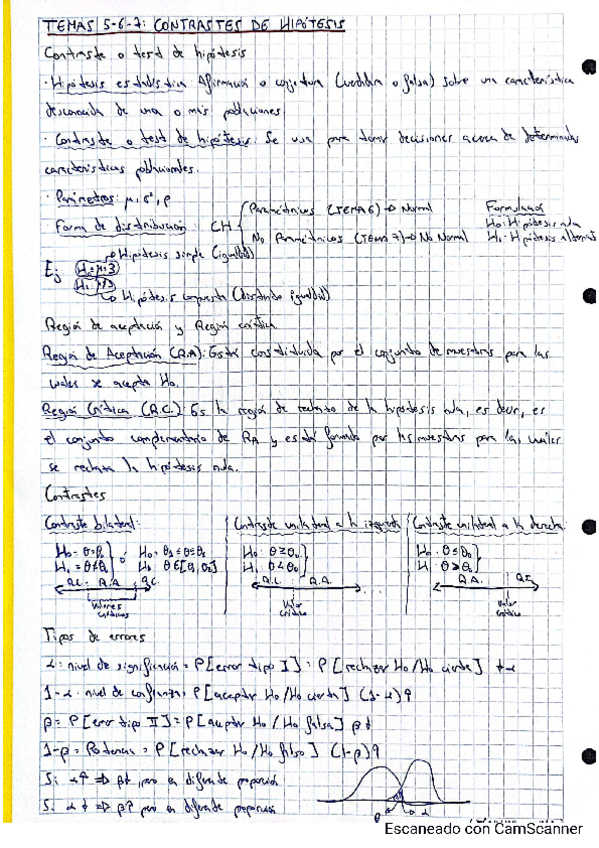 TEMAS 5-6-7: CONTRASTES DE HIPÓTESIS
Contraste o test de hipótesis
· Hipótesis estadística: Afirmación o conjetura (verdadera o falsa) sobre una característica
desconocida de una o más poblaciones.
· Contraste o test de hipótesis: Se usa para tomar decisiones acerca de determinadas
características poblacionales.
· Parámetros: μ, σ², p
Forma de distribución: CH { Paramétricos (TEMA 6) → Normal
No Paramétricos (TEMA 7) → No Normal
Formulación
H₀: Hipótesis nula
H₁: Hipótesis alternat
→ Hipótesis simple (igualdad)
Ej: H₀ = μ = 3
H₁
→ Hipótesis compuesta (distinto igualdad)
Región de aceptación y Región crítica
Región de Aceptación (R.A): Está constituida por el conjunto de muestras para las
cuales se acepta H₀.
Región Crítica (R.C.): Es la región de rechazo de la hipótesis nula, es decir, es
el conjunto complementario de RA y está formado por las muestras para las cuales
se rechaza la hipótesis nula.
Contrastes
Contraste bilateral:
H₀ = θ=θ₀
H₁ = θ≠θ₀
o H₀ = θ₁ ≤ θ ≤ θ₂
H₁ θ∉[θ₁, θ₂]
R.C. R.A. R.C.
Valores críticos
Contraste unilateral a la izquierda
H₀ · θ≥θ₀
H₁ · θ<θ₀
R.C. R.A.
Valor crítico
Contraste unilateral a la derecha
H₀ · θ≤θ₀
H₁ · θ>θ₀
R.A. R.C.
Valor crítico
Tipos de errores
α: nivel de significación = P[error tipo I] = P[rechazar H₀/H₀ cierta] ↓α
1-α: nivel de confianza = P[aceptar H₀/H₀ cierta] (1-α)↑
β = P[error tipo II] = P[aceptar H₀/H₀ falsa] β↓
1-β = Potencia = P[rechazar H₀/H₀ falso] (1-β)↑
Si α↑ ⇒ β↓, pero en diferente proporción
Si α↓ ⇒ β↑ pero en diferente proporción
β α
Escaneado con CamScanner